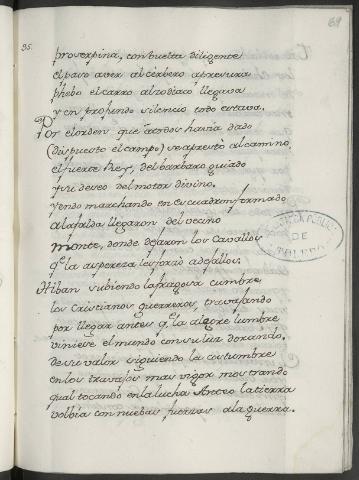 69
35.
proserpina, con buelta diligente
el paso aver al cerbero apresura
phebo el carro al zodiaco llegava
y en profundo silencio todo estava.
Por el orden que acordos havia dado
(dispuesto el campo) se aprestò al camino
el fuerte Rey, del barbaro guiado
y su deseo del motor divino.
yendo marchando en escuadron formado
a la falda llegaron del vecino
monte, donde dejaron los Cavallos
qe. la aspereza les forzò a dejallos.
Hiban subiendo la fragosa cumbre
los Cristianos guerreros, travajando
por llegar antes qe. la alegre lumbre
viniese el mundo con su luz dorando.
de su valor siguiendo la costumbre
en los travajos mas vigor mostrando
qual tocando en la lucha Anteo la tierra
volbia con nuebas fuerzas a la guerra.
DE
TOLEDO